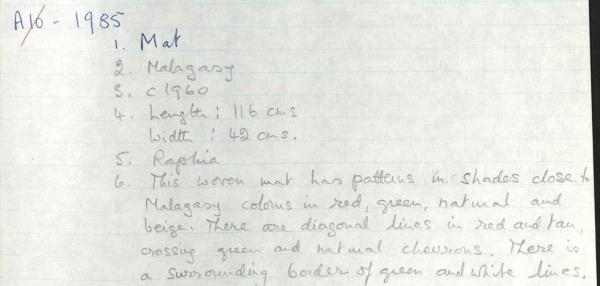 A10 - 1985
1. Mat
2. Malagasy
3. c 1960
4. Length : 116 cms
Width : 42 cms.
5. Raphia
6. This woven mat has patterns in shades close to
Malagasy colours in red, green, natural and
beige. There are diagonal lines in red and tan,
crossing green and natural chevrons. There is
a surrounding border of green and white lines.